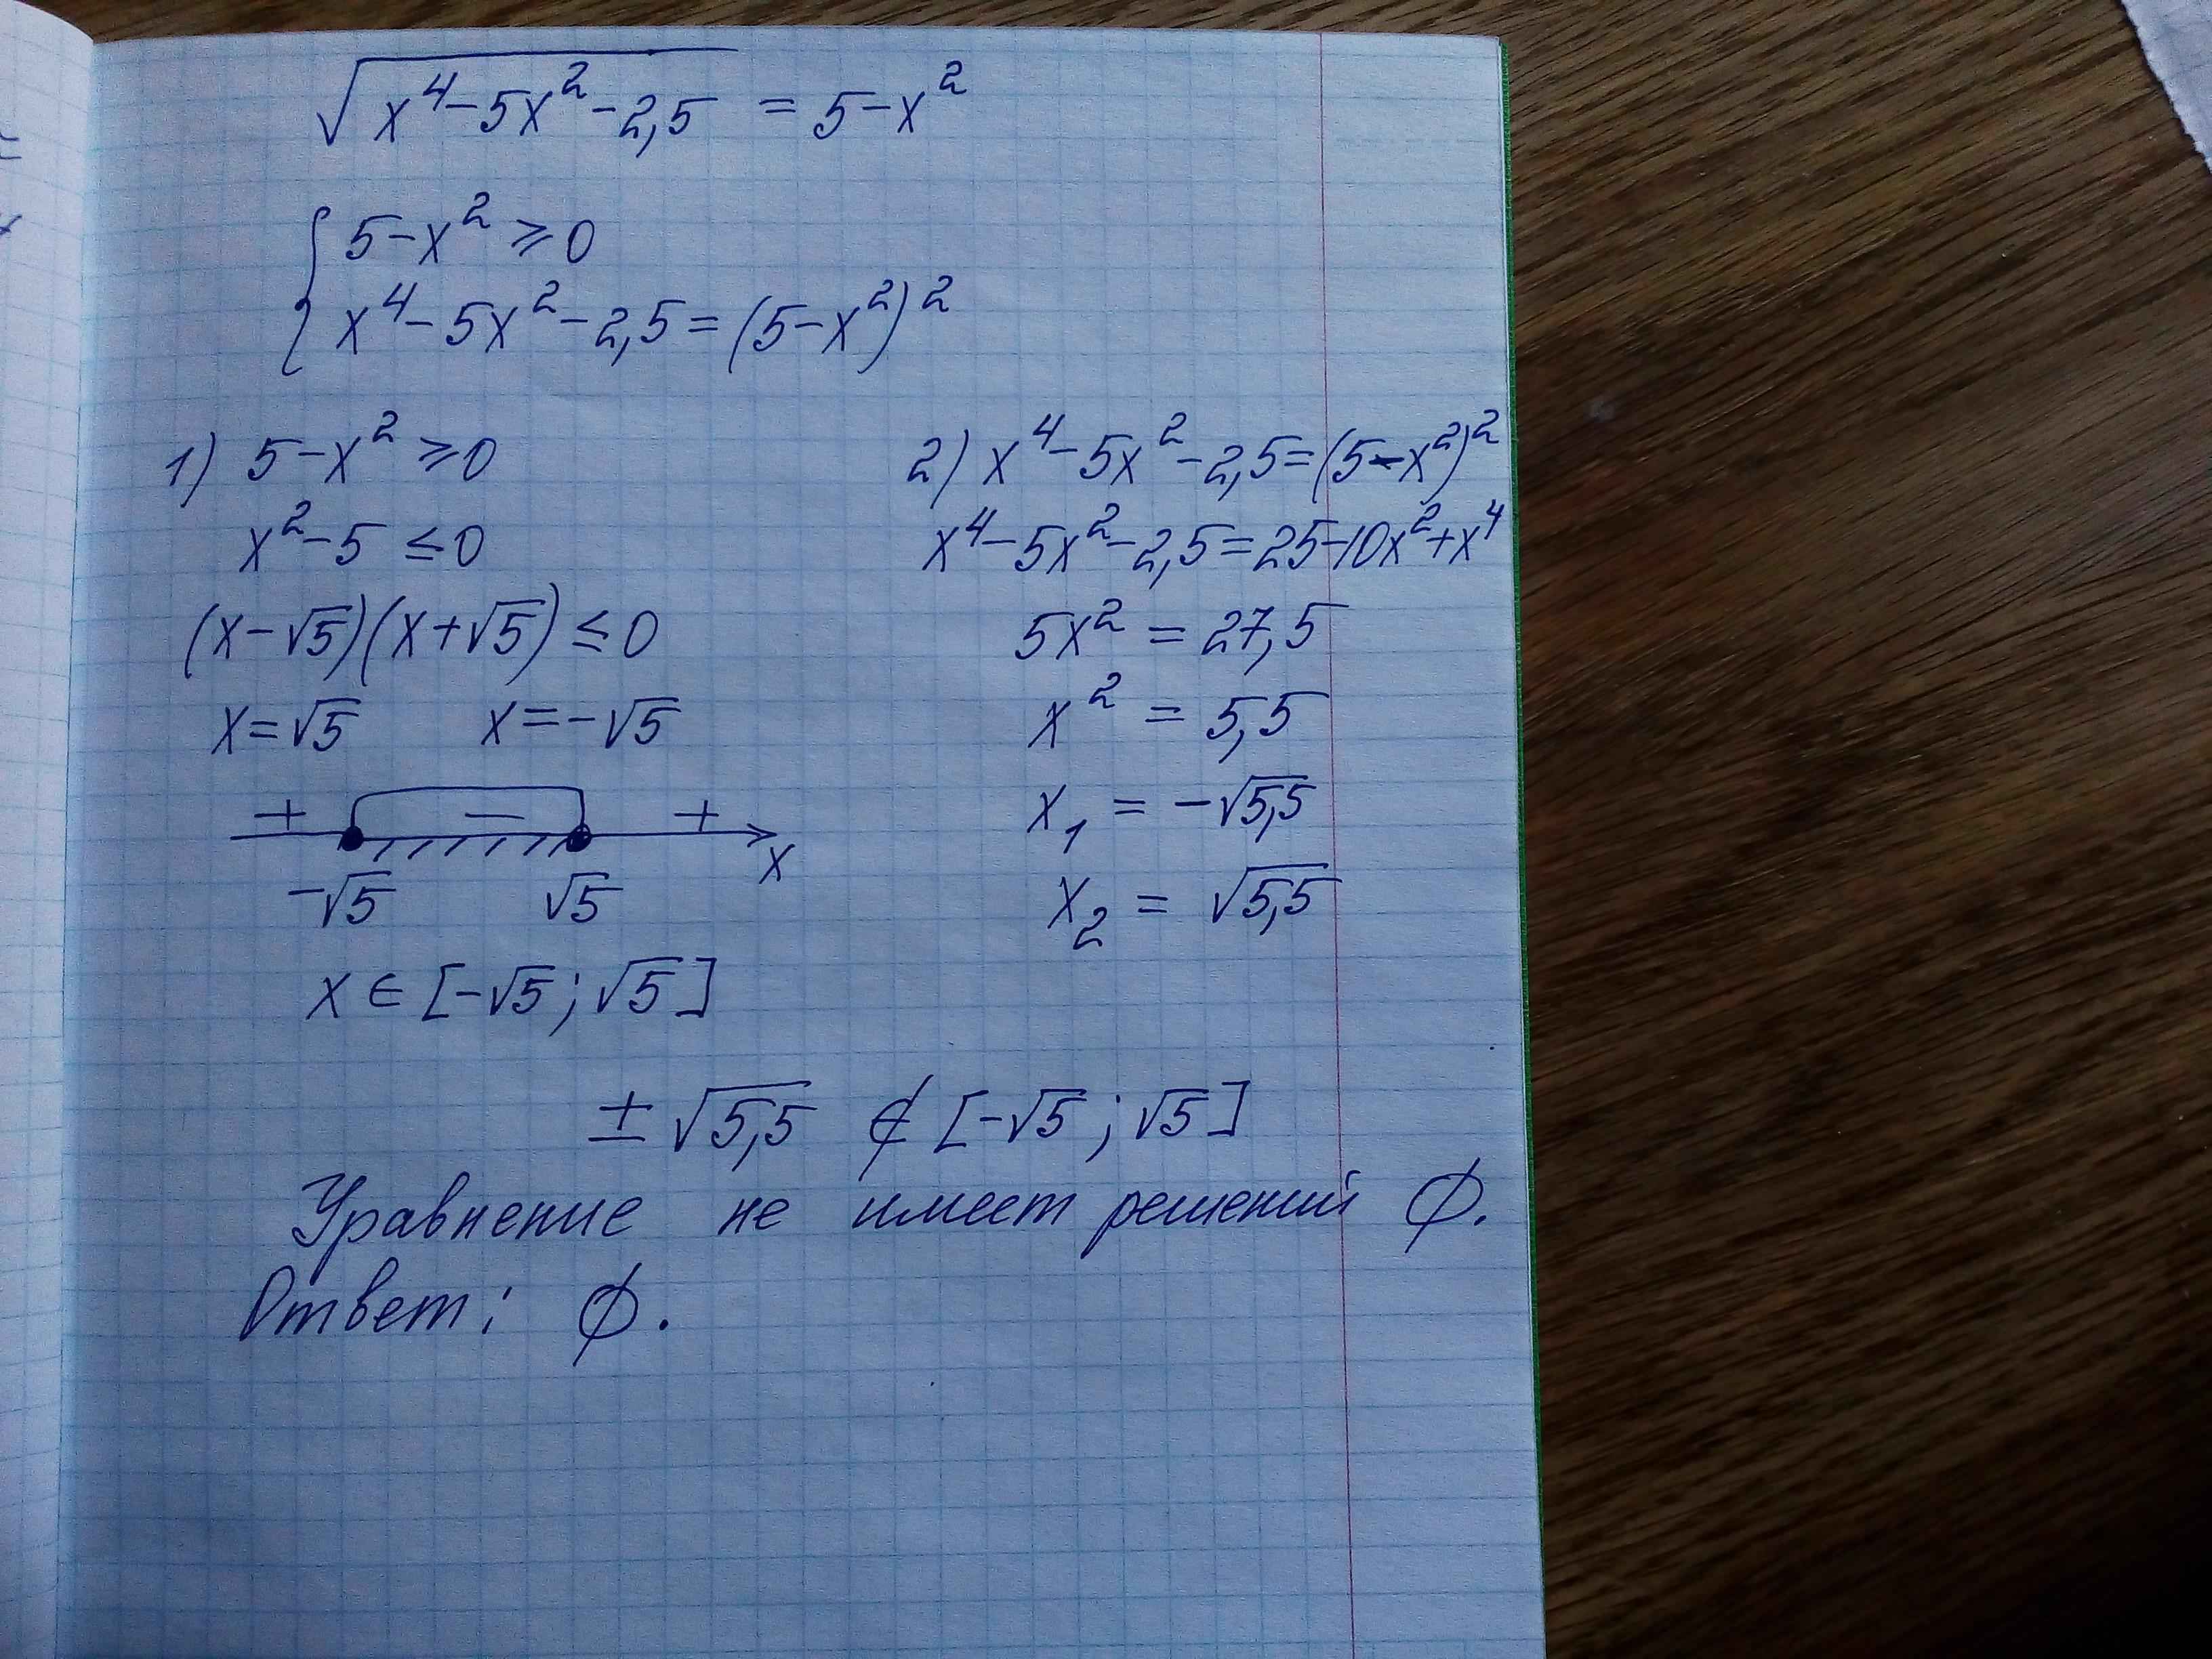 √(x⁴-5x²-2,5) = 5-x²
{ 5-x² ⩾ 0
x⁴-5x²-2,5=(5-x²)²
1) 5-x² ⩾ 0
x²-5 ≤ 0
(x-√5)(x+√5) ≤ 0
x=√5 x=-√5
+ − +
x
-√5 √5
x ∈ [-√5; √5]
2) x⁴-5x²-2,5=(5-x²)²
x⁴-5x²-2,5=25-10x²+x⁴
5x² = 27,5
x² = 5,5
x₁ = -√5,5
x₂ = √5,5
±√5,5 ∉ [-√5; √5]
Уравнение не имеет решений ∅.
Ответ: ∅.